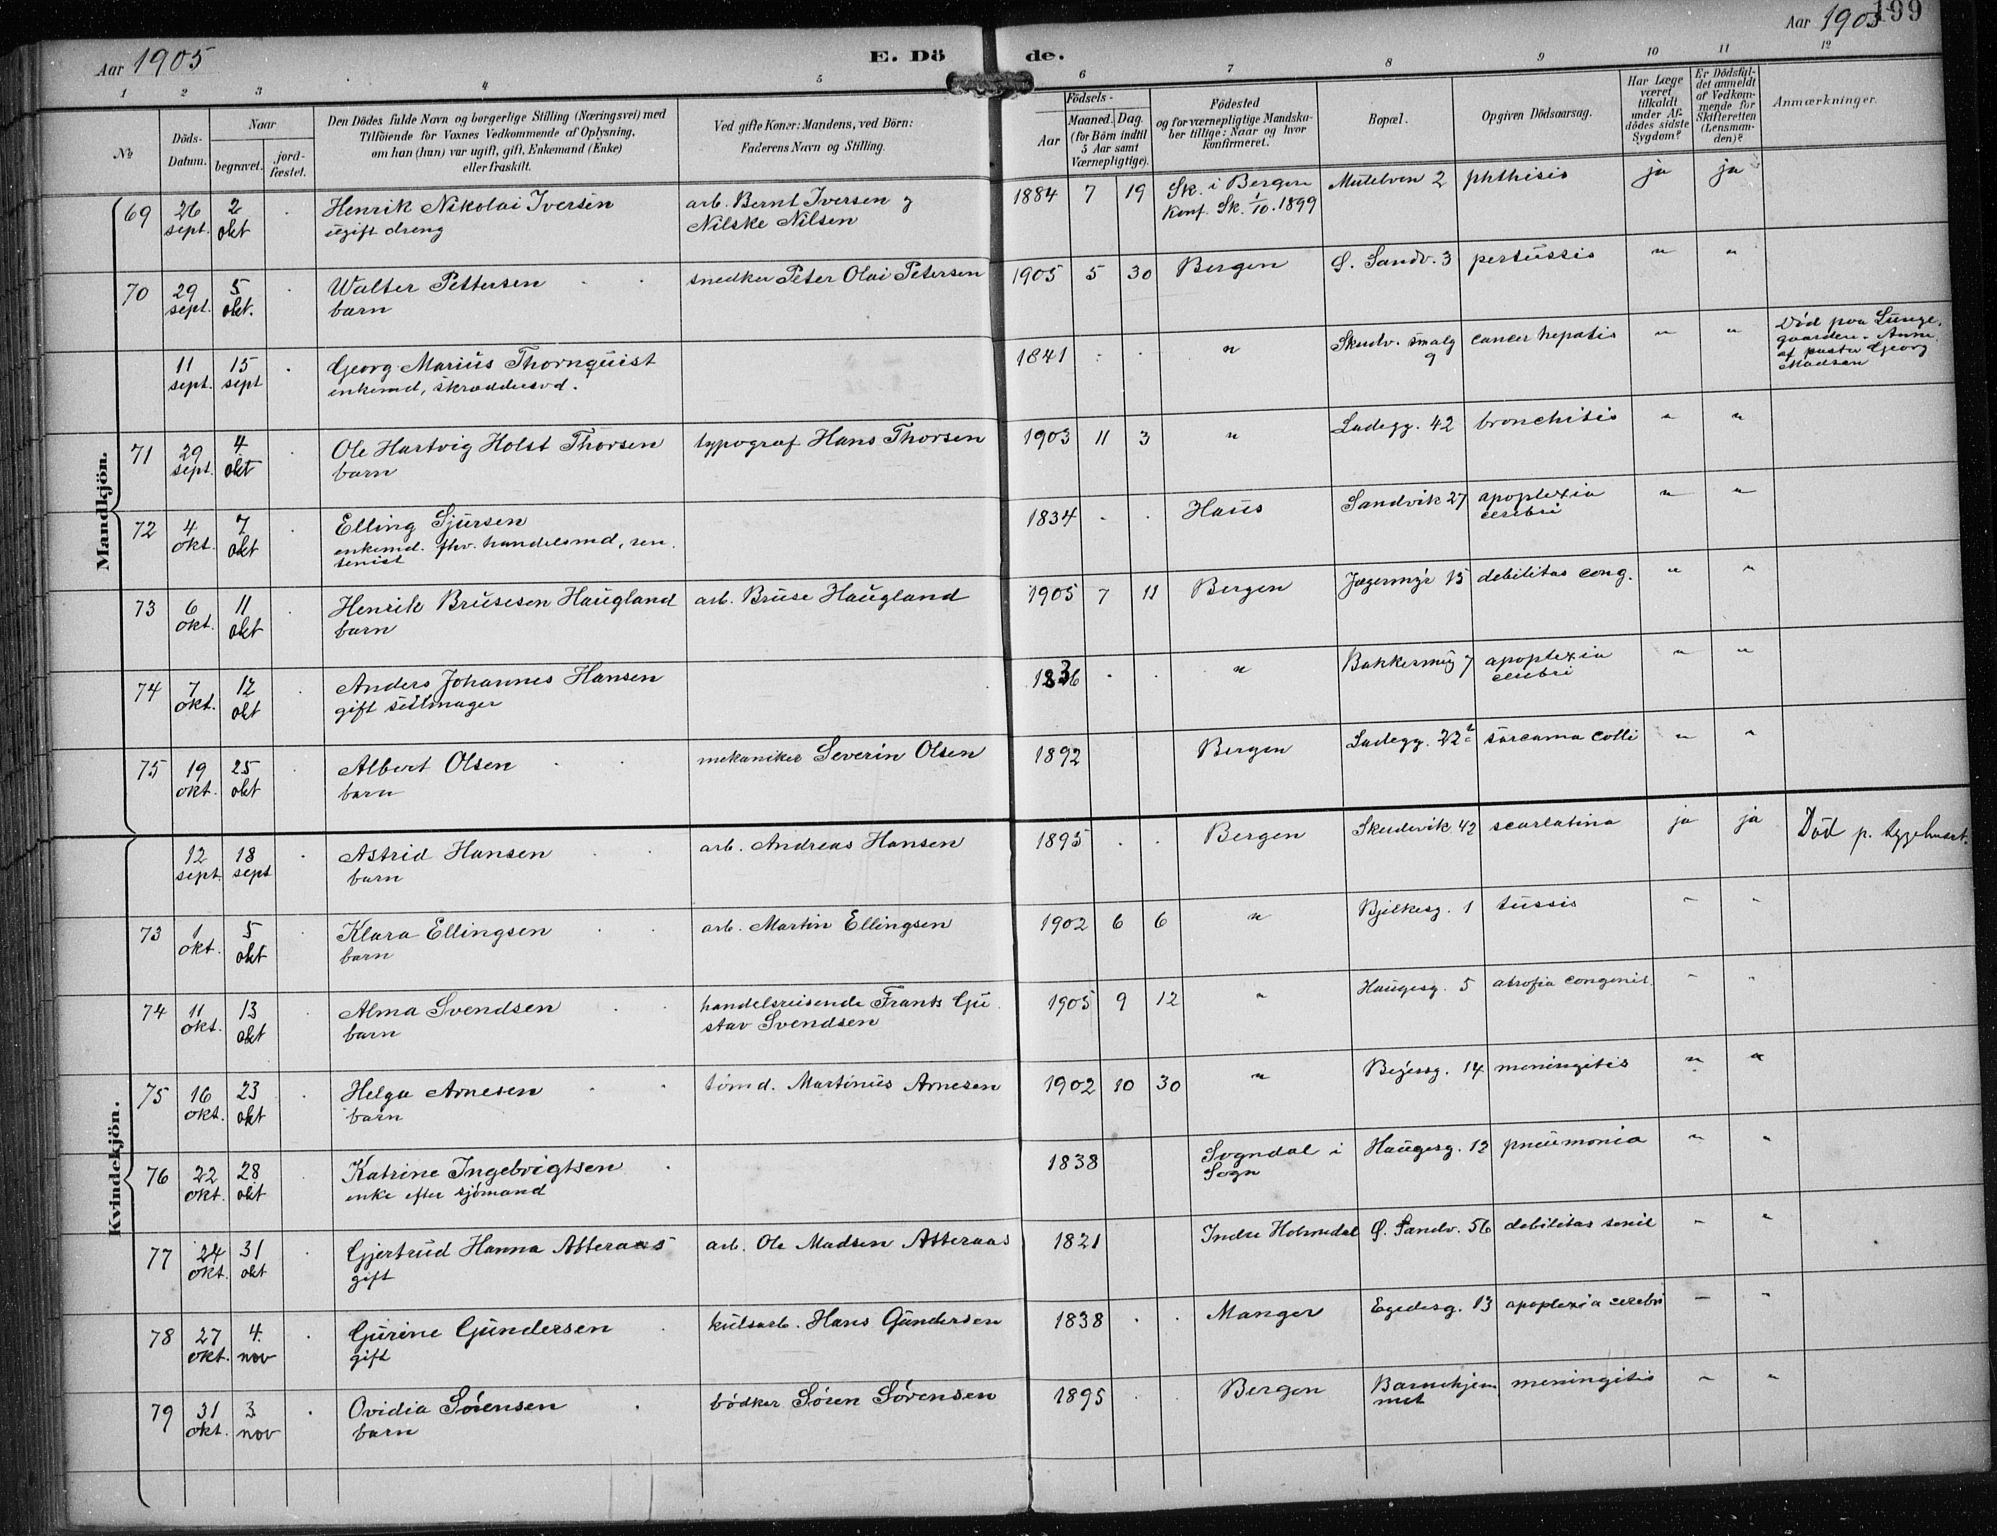 Aar 1905
E. Döde.
Aar 1905
199
1 2 3 4 5 6 7 8 9 10 11 12
№
Döds-Datum.
Naar
begravet.
jord-fæstet.
Den Dödes fulde Navn og borgerlige Stilling (Næringsvei) med
Tilföiende for Voxnes Vedkommende af Oplysning,
om han (hun) var ugift, gift, Enkemand (Enke)
eller fraskilt.
Ved gifte Koner: Mandens, ved Börn:
Faderens Navn og Stilling.
Födsels-
Aar
Maaned. Dag.
(for Börn indtil
5 Aar samt
Værnepligtige).
Födested
og for værnepligtige Mandska-
ber tillige: Naar og hvor
konfirmeret.
Bopæl.
Opgiven Dödsaarsag.
Har Læge
været
tilkaldt
under Af-
dödes sidste
Sygdom?
Er Dödsfal-
det anmeldt
af Vedkom-
mende for
Skifteretten
(Lensman-
den)?
Anmærkninger.
Mandkjön.
69 26 sept. 2 okt Henrik Nikolai Iversen arb. Bernt Iversen og 1884 7 19 Sk. i Bergen Mutelven 2 phthisis ja ja
ugift dreng Nilske Nilsen Konf. Sk. 1/10. 1899
70 29 sept. 5 okt. Walter Pettersen snedker Peter Olai Petersen 1905 5 30 Bergen Ø. Sandv. 3 pertussis " "
barn
11 sept. 15 sept Georg Marius Thornquist 1841 " Skudv. smalg 9 cancer hepatis " " Död paa Lunge-
enkemd, skræddersvd. gaarden. Anm.
af pastor Georg
Madsen
71 29 sept. 4 okt Ole Hartvig Holst Thorsen typograf Hans Thorsen 1903 11 3 " Ladegg. 42 bronchitis " "
barn
72 4 okt. 7 okt Elling Sjursen 1834 Haus Sandvik 27 apoplexia " "
enkemd. fhv. handelsmd, ren- cerebri
tenist
73 6 okt. 11 okt Henrik Brusesen Haugland arb. Bruse Haugland 1905 7 11 Bergen Jægermyr 15 debilitas cong. " "
barn
74 7 okt. 12 okt Anders Johannes Hansen 1836 " Bakkermug 7 apoplexia " "
gift seilmager cerebri
75 19 okt. 25 okt Albert Olsen mekaniker Severin Olsen 1892 Bergen Ladegg. 22 sarcama colli " "
barn
Kvindekjön.
12 sept. 18 sept Astrid Hansen arb. Andreas Hansen 1895 Bergen Skudevik 42 scarlatina ja ja Död p. sygehuset.
barn
73 1 okt. 5 okt Klara Ellingsen arb. Martin Ellingsen 1902 6 6 " Bjelkesg. 1 tussis " "
barn
74 11 okt. 13 okt Alma Svendsen handelsreisende Frants Gu- 1905 9 12 " Haugesg. 5 atrofia congenit. " "
barn stav Svendsen
75 16 okt. 23 okt Helga Arnesen tömd. Martinus Arnesen 1902 10 30 " Beyersg. 14 meningitis " "
barn
76 22 okt. 28 okt Katrine Ingebrigtsen 1838 Sogndal i Haugesg. 12 pneumonia " "
enke efter sjömand Sogn
77 24 okt. 31 okt Gjertrud Hanna Atteraas arb. Ole Madsen Atteraas 1821 Indre Holmedal Ø. Sandv. 56 debilitas senil " "
gift
78 27 okt. 4. nov Gurine Gundersen kulsarb. Hans Gundersen 1838 Manger Egedesg. 13 apoplexia cerebri " "
gift
79 31 okt. 3 nov Ovidia Sörensen bödker Sören Sörensen 1895 Bergen Barnehjem- meningitis " "
barn met